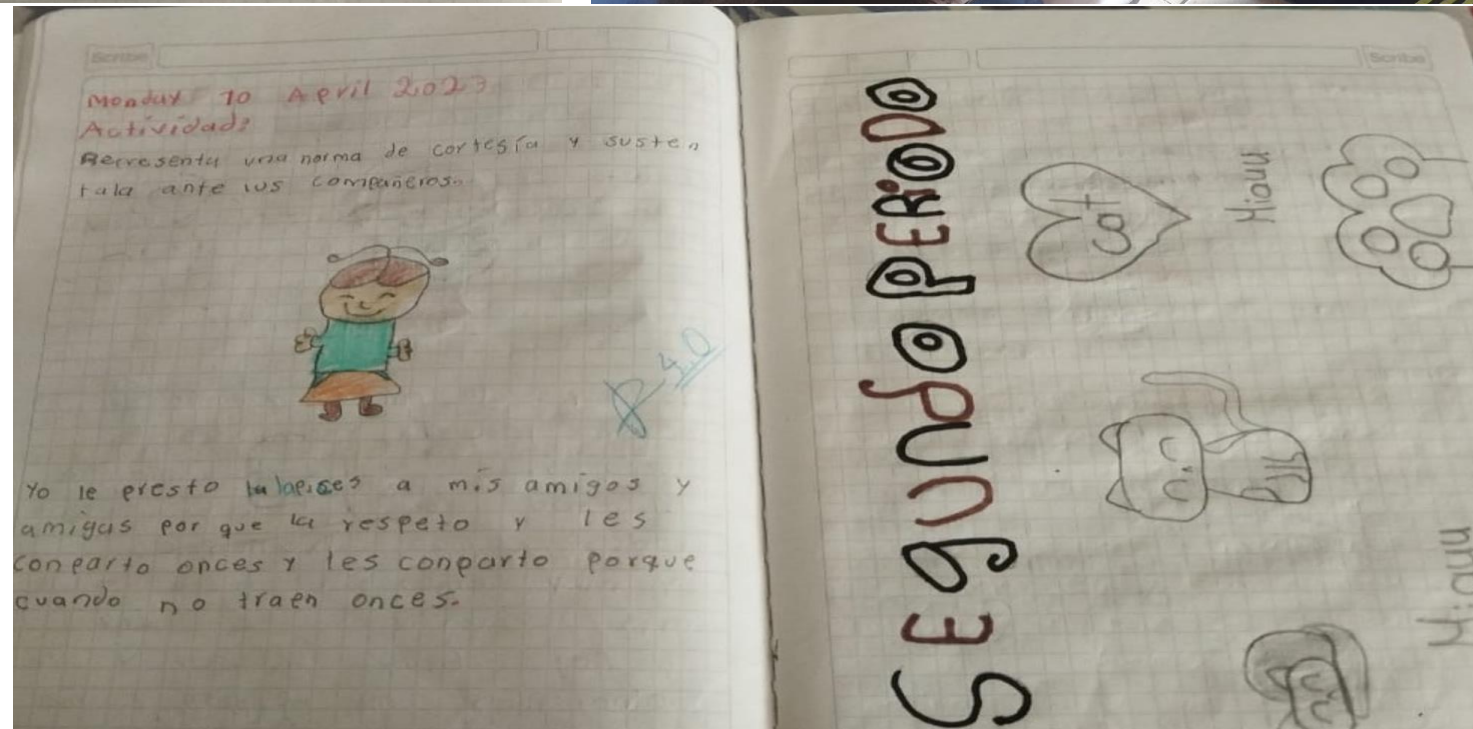 Scribe
Monday 10 April 2023
Actividad:
Representa una norma de cortesía y susten
tala ante tus compañeros.
Yo le presto lapises a mis amigos y
amigas por que la respeto y les
conparto onces y les conparto porque
cuando no traen onces.
Scribe
SEgUNdO PERiODO
cat
Miauu
Miauu